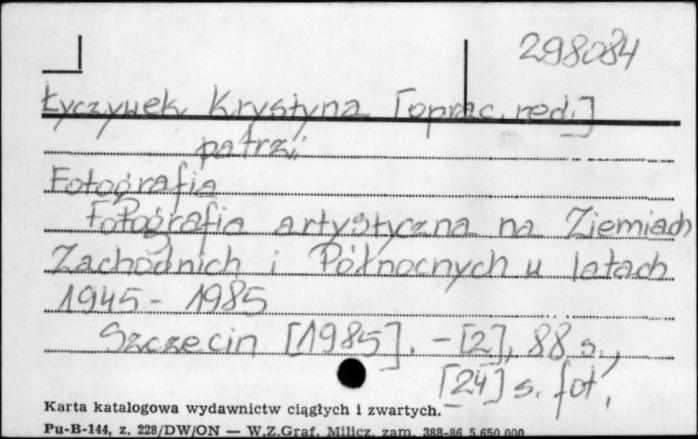 298084
Łyczywek Krystyna [oprac. red.]
patrz:
Fotografia
Fotografia artystyczna na Ziemiach
Zachodnich i Północnych w latach
1945 - 1985
Szczecin [1985]. - [2], 88 s.,
[24] s. fot.
Karta katalogowa wydawnictw ciągłych i zwartych.
Pu-B-144, z. 228/DW/ON — W.Z.Graf. Milicz, zam. 388-86 5.650.000